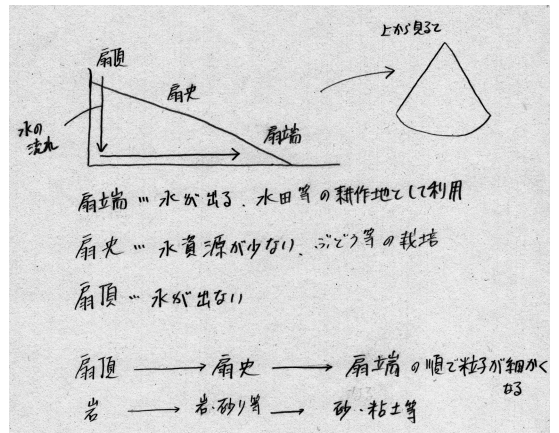 上から見ると
扇頂
扇央
扇端
水の
流れ
扇端…水が出る、水田等の耕作地として利用
扇央…水資源が少ない、ぶどう等の栽培
扇頂…水が出ない
扇頂 → 扇央 → 扇端の順で粒子が細かく
なる
岩 → 岩・砂り等 → 砂・粘土等